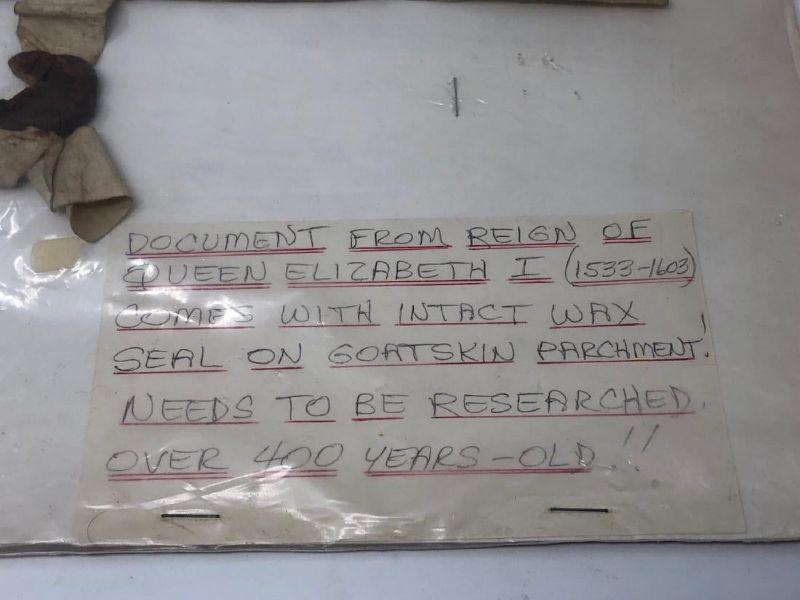 DOCUMENT FROM REIGN OF
QUEEN ELIZABETH I (1533-1603)
COMES WITH INTACT WAX
SEAL ON GOATSKIN PARCHMENT!
NEEDS TO BE RESEARCHED.
OVER 400 YEARS-OLD!!